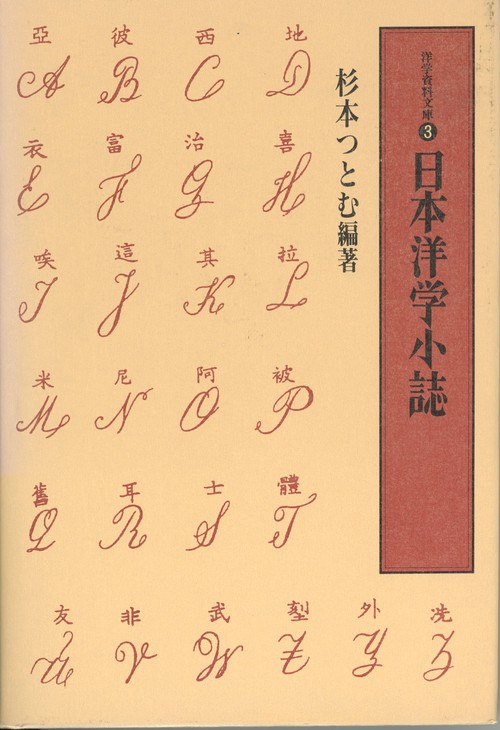 洋学資料文庫❸
日本洋学小誌
杉本つとむ編著
亞 彼 西 地
A B C D
衣 富 治 喜
E F G H
唉 這 其 拉
I J K L
米 尼 阿 被
M N O P
舊 耳 士 體
Q R S T
友 非 武 外 冼
U V W Y Z